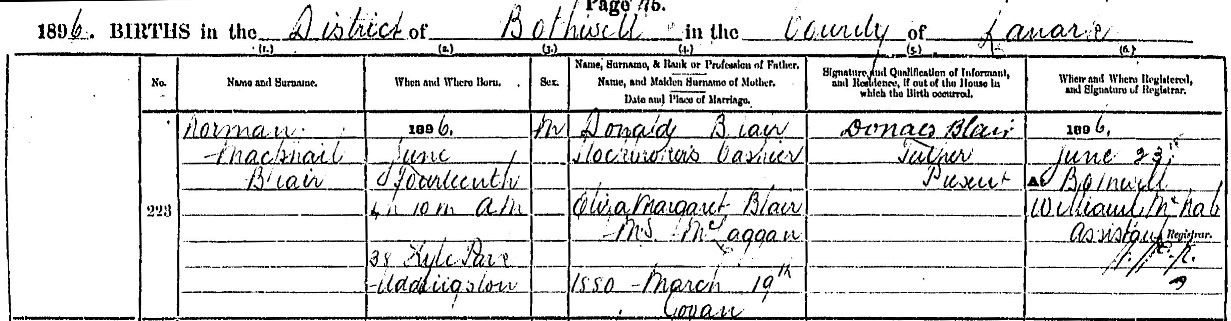 Page 76.
1896. BIRTHS in the District of Bothwell in the County of Lanark
(1.) (2.) (3.) (4.) (5.) (6.)
No.
Name and Surname.
When and Where Born.
Sex.
Name, Surname, & Rank or Profession of Father.
Name, and Maiden Surname of Mother.
Date and Place of Marriage.
Signature and Qualification of Informant,
and Residence, if out of the House in
which the Birth occurred.
When and Where Registered,
and Signature of Registrar.
223
Norman
Macphail
Blair
1896.
June
Fourteenth
4h 10m A.M
38 Kyle Park
Uddingston
M
Donald Blair
Cashier
Eliza Margaret Blair
M.S. McTaggart
1880 March 19th
Govan
Donald Blair
Father
Present
1896.
June 23rd
At Bothwell
William McNab
Assistant Registrar.